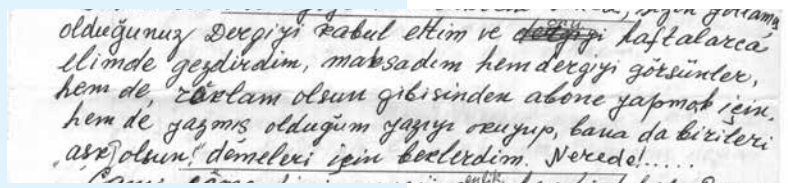 sizin yollamış
olduğunuz Dergiyi kabul ettim ve onu haftalarca
elimde gezdirdim, maksadım hem dergiyi görsünler,
hem de, reklam olsun gibisinden abone yapmak için.
hem de yazmış olduğum yazıyı okuyup, bana da birileri
"aşk olsun" demeleri için beklerdim. Nerede!......